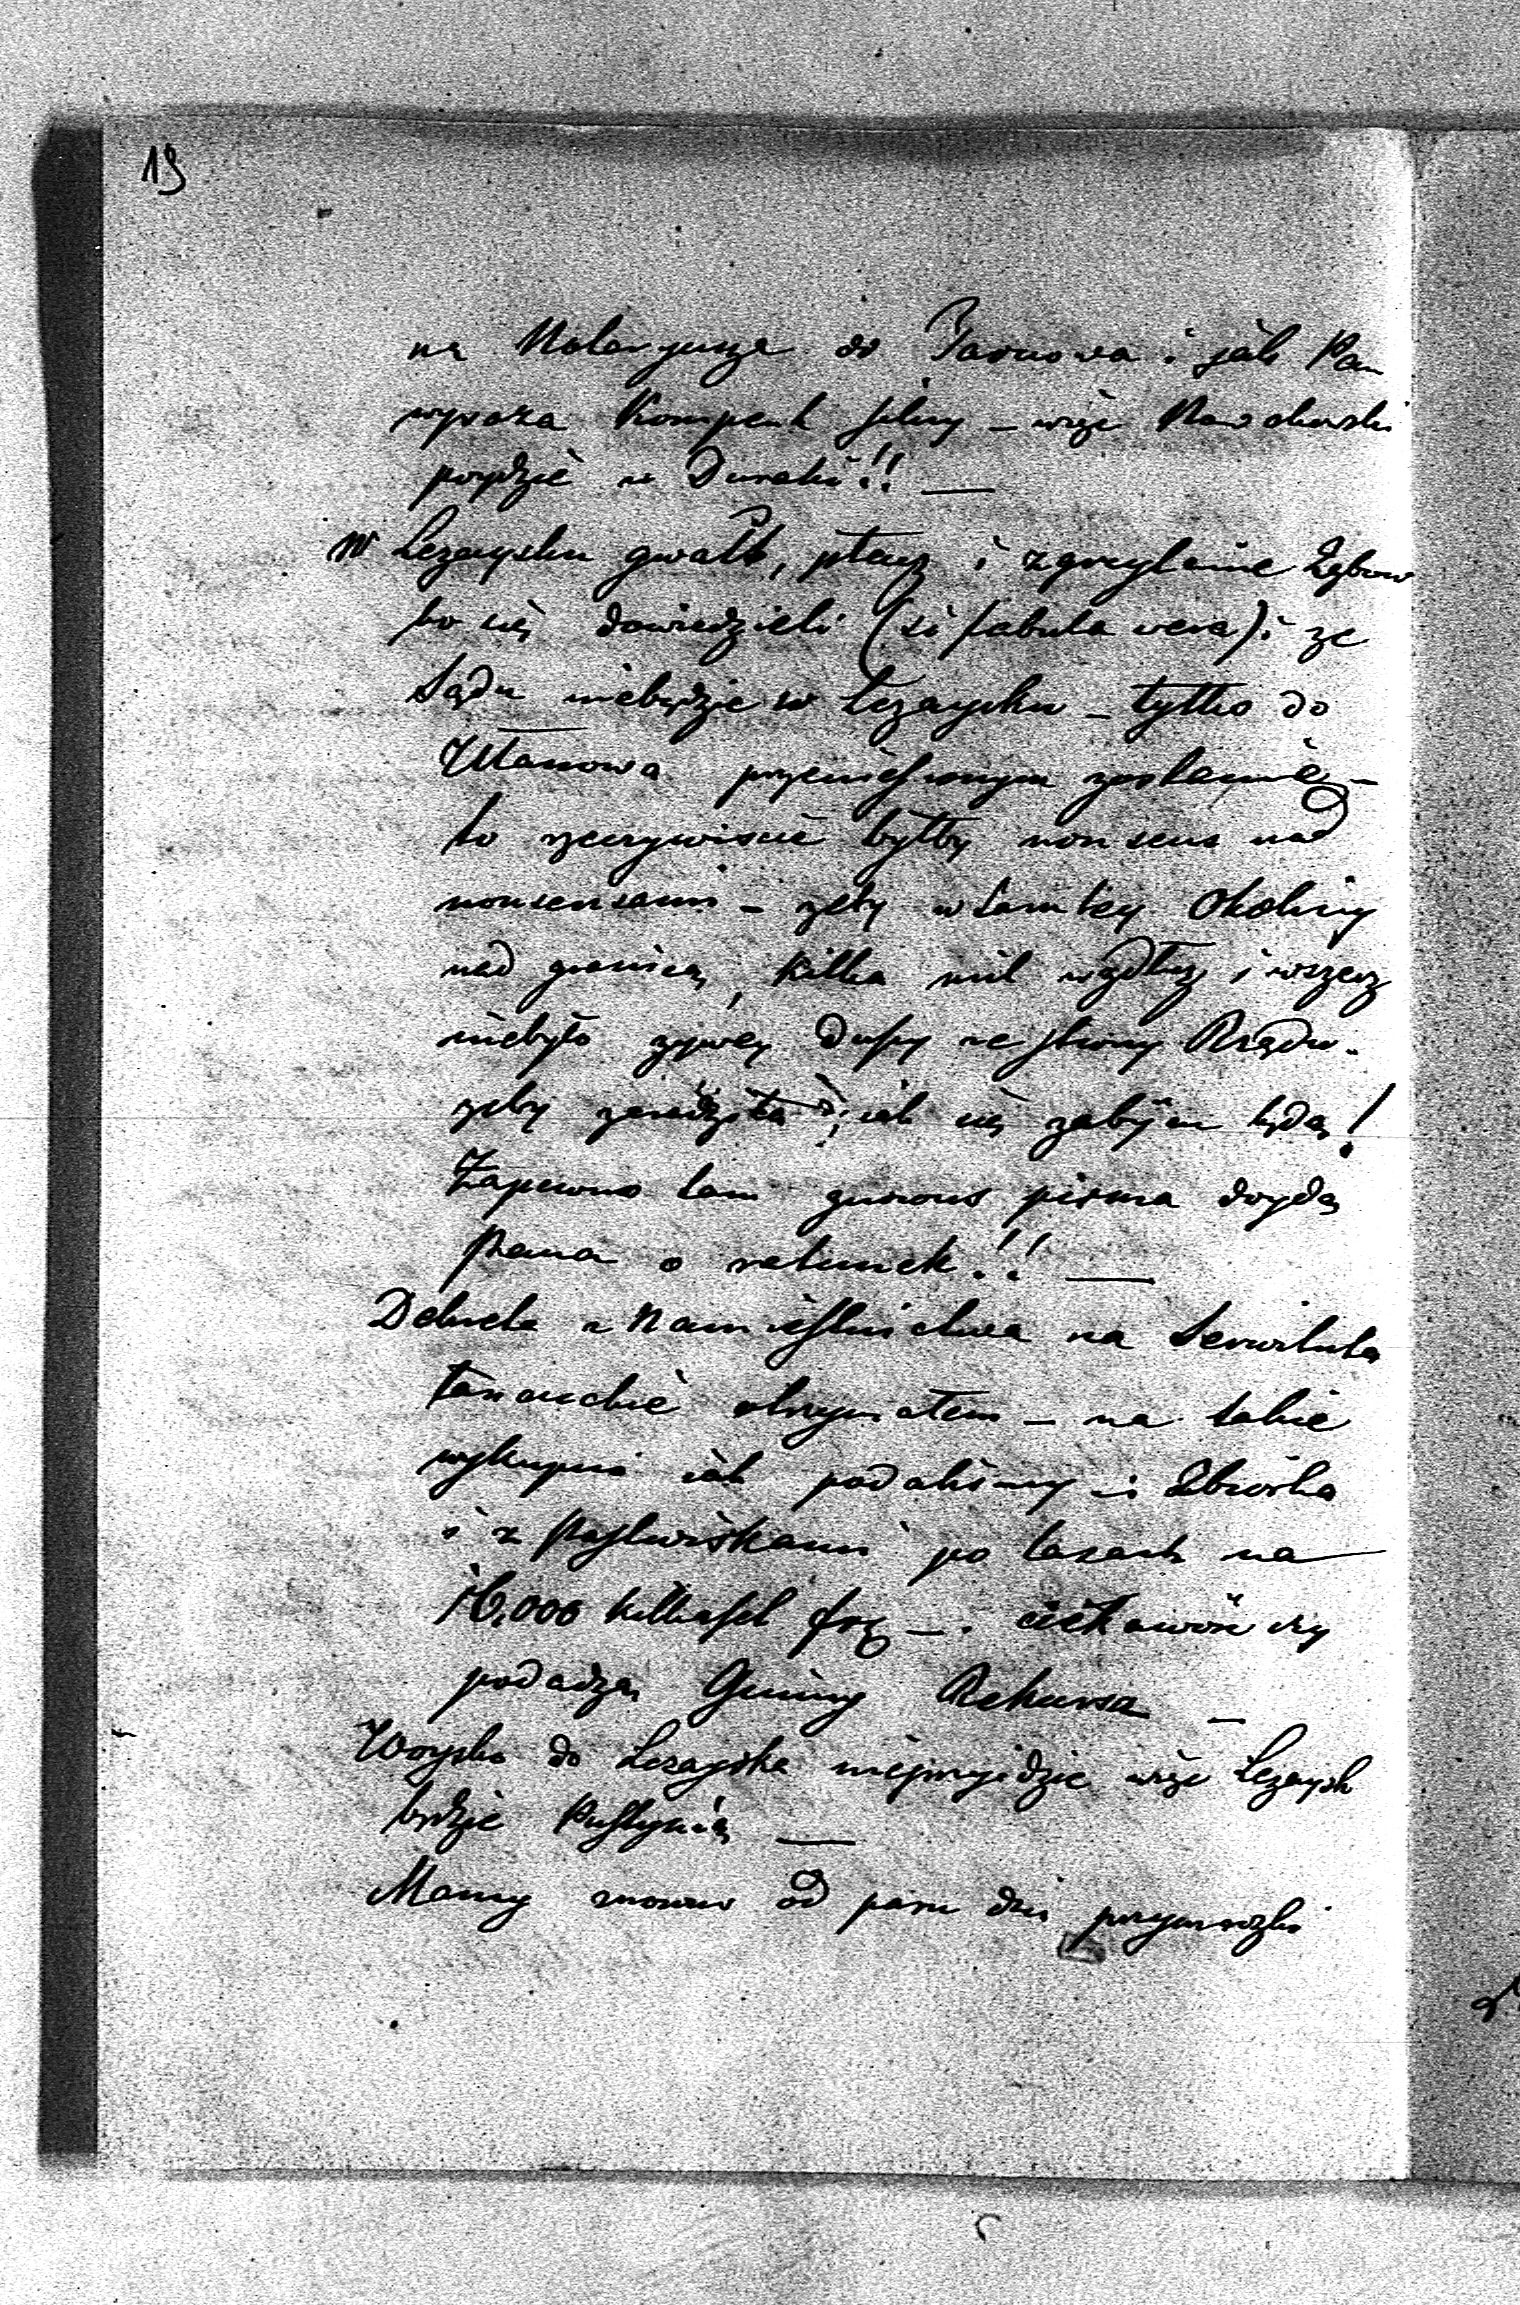 19
na Notaryusza do Tarnowa i jak Pan
wyraża Kompent silny – więc Nawakowski
pojdzie w Duraki!! —
W Leżaysku gwałt, płacz i zgrzytanie Zębow
bo się dowiedzieli (si fabula vera) i że
Sądu niebędzie w Leżaysku – tylko do
Ulanowa przeniesionym zostanie –
to rzeczywiscie byłby nonsens nad
nonsensami – żeby w tamtey Okolicy
nad granicą, kilka mil wzdłuż i wszerz
niebyło żywey duszy ze strony Rządu
żeby jak się zabijać będą!
Zapewno tam gminowe pisma dojdą
Pana o ratunek!! —
Dekreta z Namiestnictwa na Serwituta
łańcuckie otrzymałem – na takie
wykupno jak podaliśmy – i Zbiórka
i z Pastwiskami po lasach na
16,000 kilkaset – ciekawość czy
podadzą Gminy Rekursa –
Woysko do Leżayska nieprzyidzie więc Leżaysk
będzie Pustynią —
Mamy znowu od paru dni przymrozki